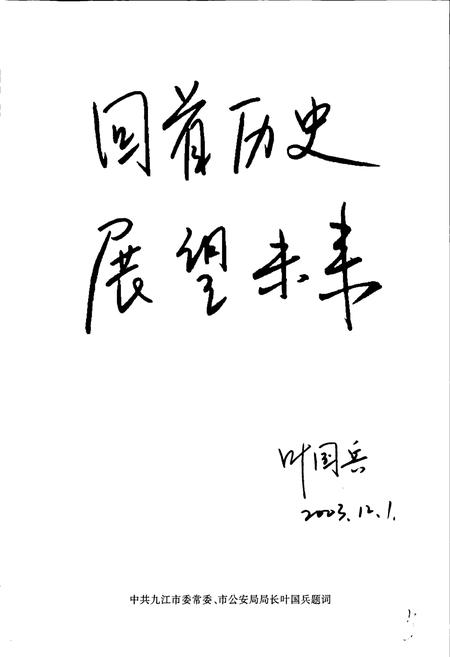 回首历史
展望未来
叶国兵
2003.12.1.
中共九江市委常委、市公安局局长叶国兵题词